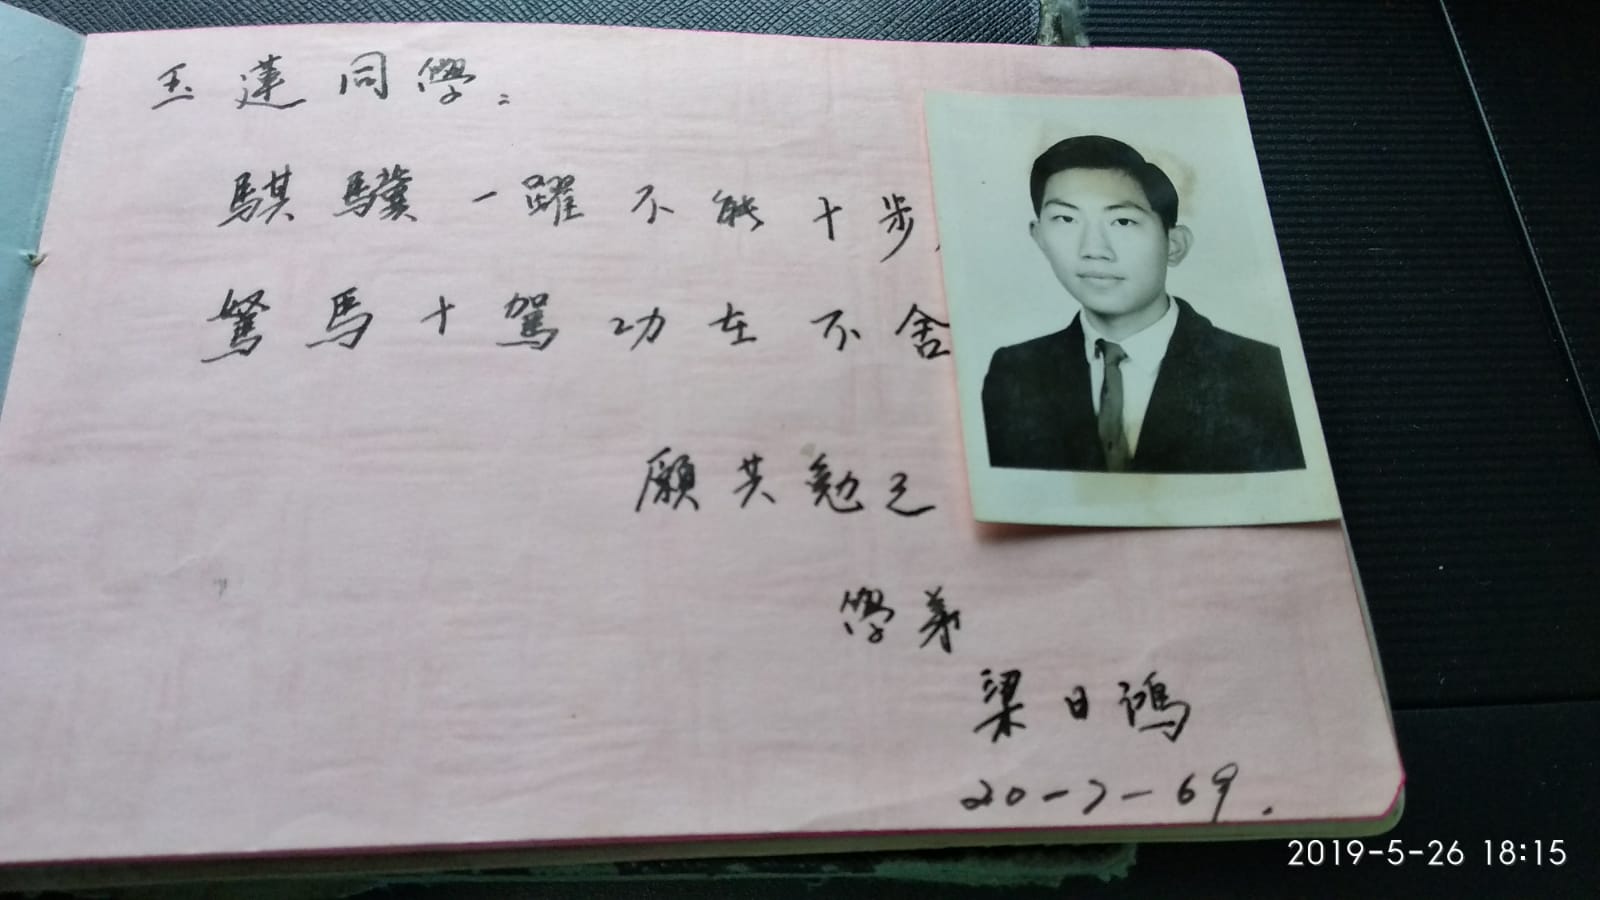 玉蓮同學：
騏驥一躍不能十步，
駑馬十駕功在不舍
願共勉之
學弟
梁日鴻
20-7-69.
2019-5-26 18:15